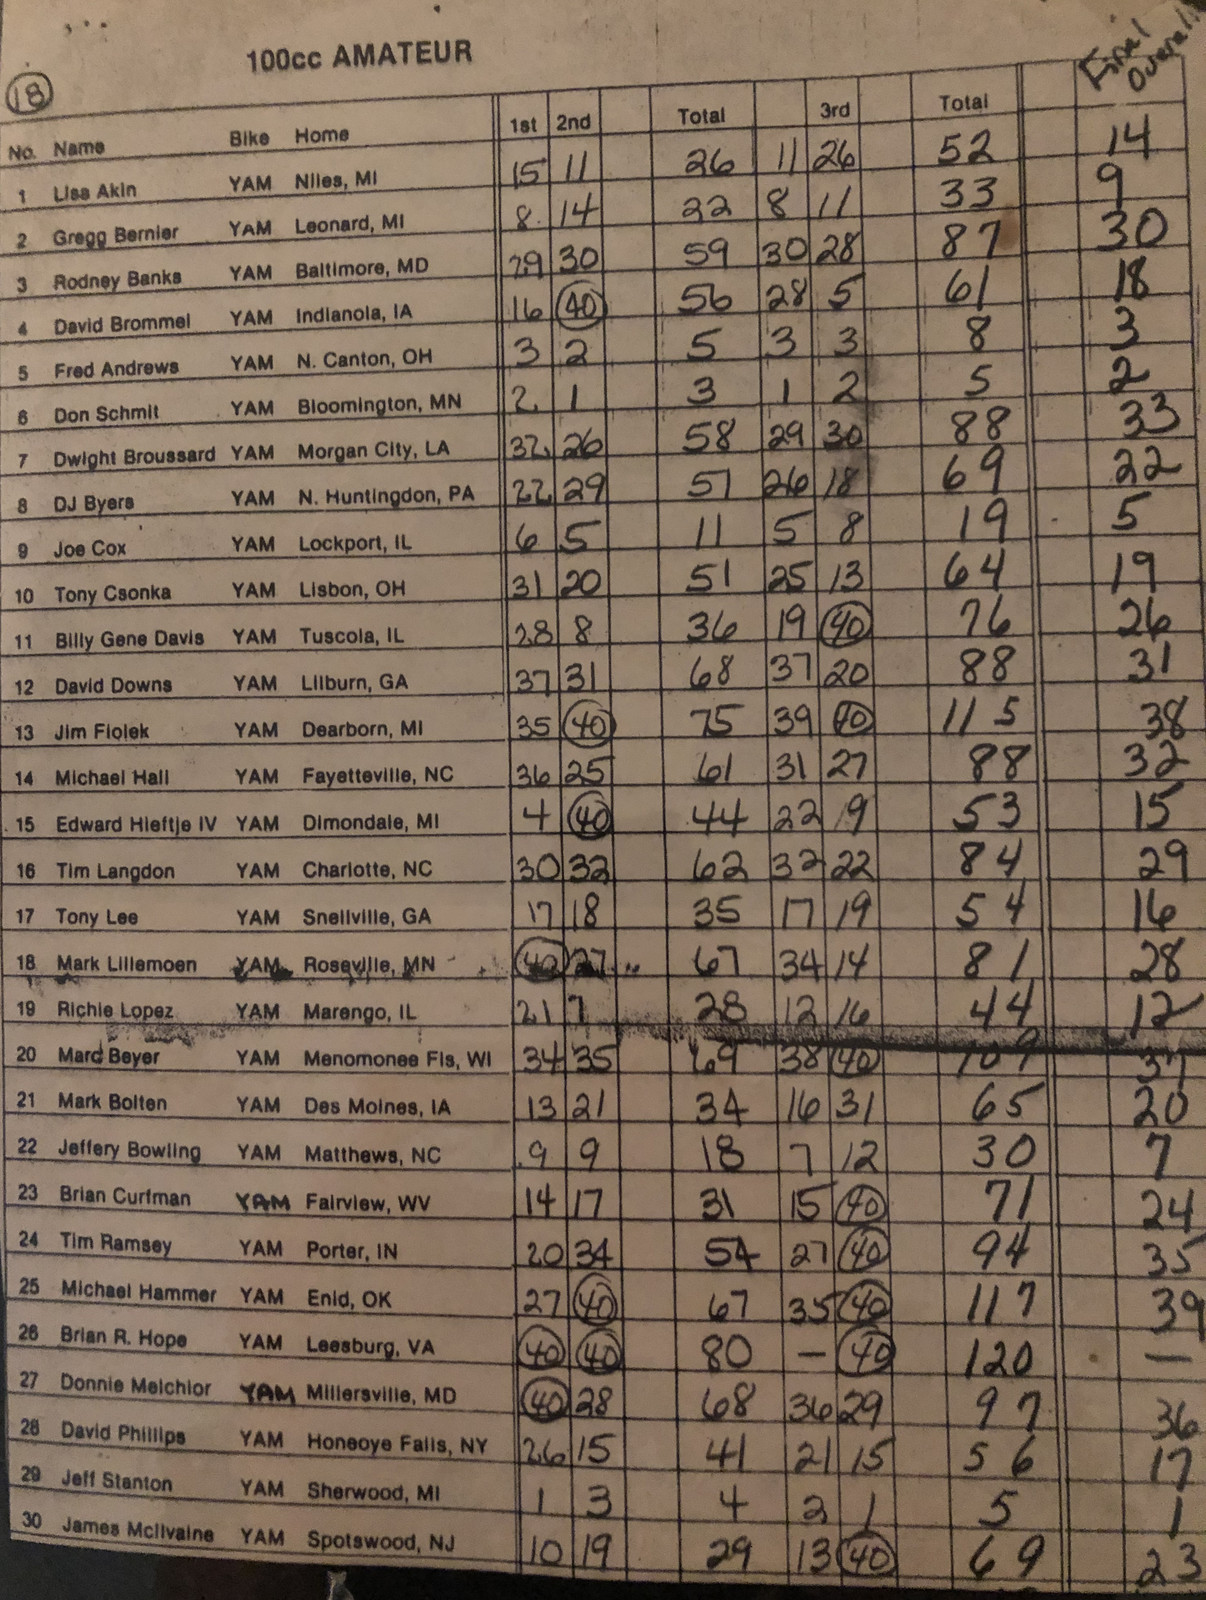 Final Overall
100cc AMATEUR
18
No. Name Bike Home 1st 2nd Total 3rd Total
1 Lisa Akin YAM Niles, MI 15 11 26 11 26 52 14
2 Gregg Bernier YAM Leonard, MI 8 14 22 8 11 33 9
3 Rodney Banks YAM Baltimore, MD 29 30 59 30 28 87 30
4 David Brommel YAM Indianola, IA 16 40 56 28 5 61 18
5 Fred Andrews YAM N. Canton, OH 3 2 5 3 3 8 3
6 Don Schmit YAM Bloomington, MN 2 1 3 1 2 5 2
7 Dwight Broussard YAM Morgan City, LA 32 26 58 29 30 88 33
8 DJ Byers YAM N. Huntingdon, PA 22 29 51 26 18 69 22
9 Joe Cox YAM Lockport, IL 6 5 11 5 8 19 5
10 Tony Csonka YAM Lisbon, OH 31 20 51 25 13 64 19
11 Billy Gene Davis YAM Tuscola, IL 28 8 36 19 40 76 26
12 David Downs YAM Lilburn, GA 37 31 68 37 20 88 31
13 Jim Fiolek YAM Dearborn, MI 35 40 75 39 40 115 38
14 Michael Hall YAM Fayetteville, NC 36 25 61 31 27 88 32
15 Edward Hieftje IV YAM Dimondale, MI 4 40 44 22 9 53 15
16 Tim Langdon YAM Charlotte, NC 30 32 62 32 22 84 29
17 Tony Lee YAM Snellville, GA 17 18 35 17 19 54 16
18 Mark Lillemoen YAM Roseville, MN 40 27 67 34 14 81 28
19 Richie Lopez YAM Marengo, IL 21 7 28 12 16 44 12
20 Marc Beyer YAM Menomonee Fls, WI 34 35 69 38 40 109 37
21 Mark Bolten YAM Des Moines, IA 13 21 34 16 31 65 20
22 Jeffery Bowling YAM Matthews, NC 9 9 18 7 12 30 7
23 Brian Curfman YAM Fairview, WV 14 17 31 15 40 71 24
24 Tim Ramsey YAM Porter, IN 20 34 54 27 40 94 35
25 Michael Hammer YAM Enid, OK 27 40 67 35 40 117 39
26 Brian R. Hope YAM Leesburg, VA 40 40 80 — 40 120 —
27 Donnie Melchior YAM Millersville, MD 40 28 68 36 29 97 36
28 David Phillips YAM Honeoye Falls, NY 26 15 41 21 15 56 17
29 Jeff Stanton YAM Sherwood, MI 1 3 4 2 1 5 1
30 James McIlvaine YAM Spotswood, NJ 10 19 29 13 40 69 23